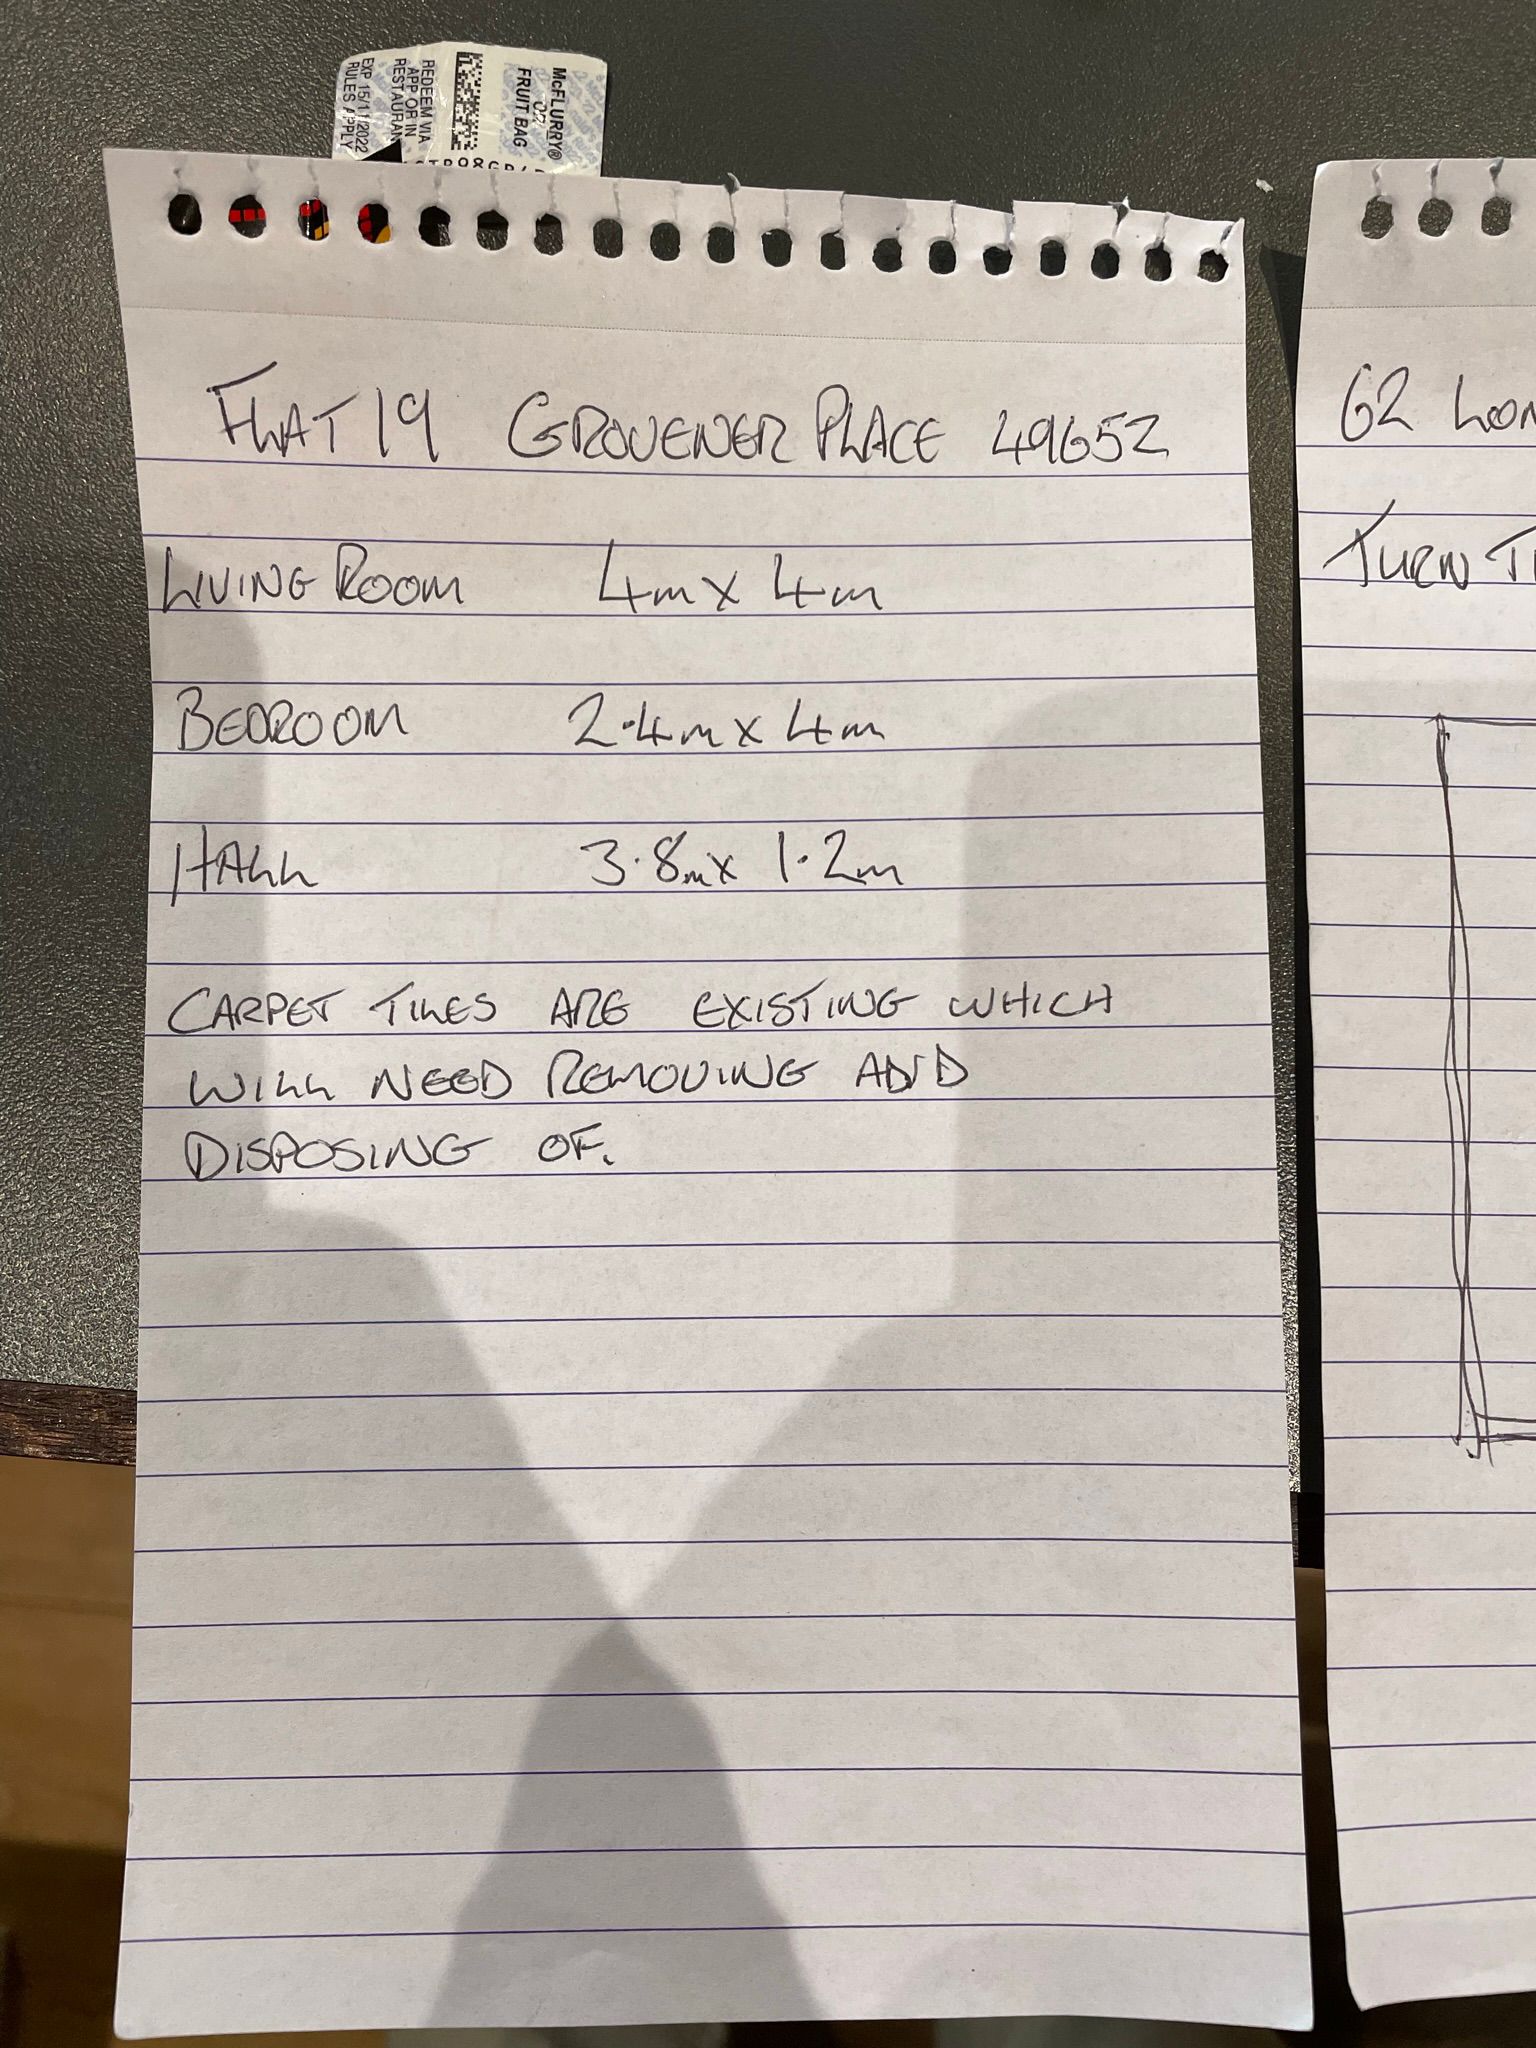 McFLURRY®
OR
FRUIT BAG
REDEEM VIA
APP OR IN
RESTAURAN
EXP 15/11/2022
RULES APPLY
FLAT 19 GROVENER PLACE 49652
LIVING ROOM 4m x 4m
BEDROOM 2.4m x 4m
HALL 3.8m x 1.2m
CARPET TILES ARE EXISTING WHICH
WILL NEED REMOVING AND
DISPOSING OF.
62 LON
TURN TI